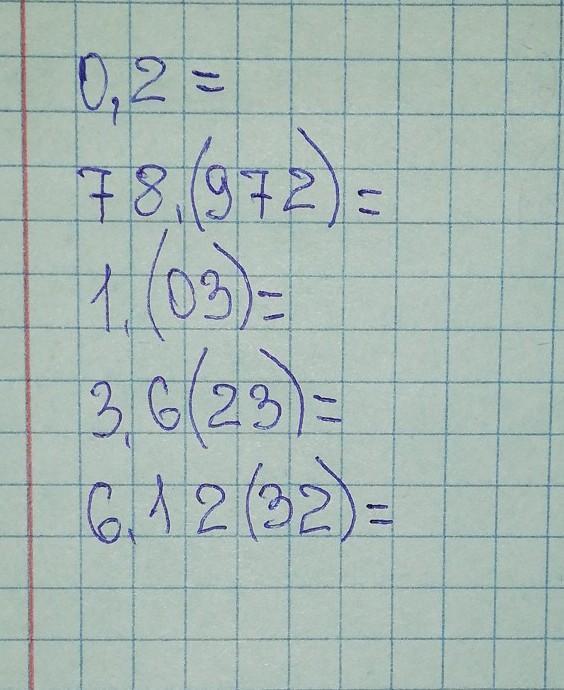 0,2 =
78,(972) =
1,(03) =
3,6(23) =
6,12(32) =